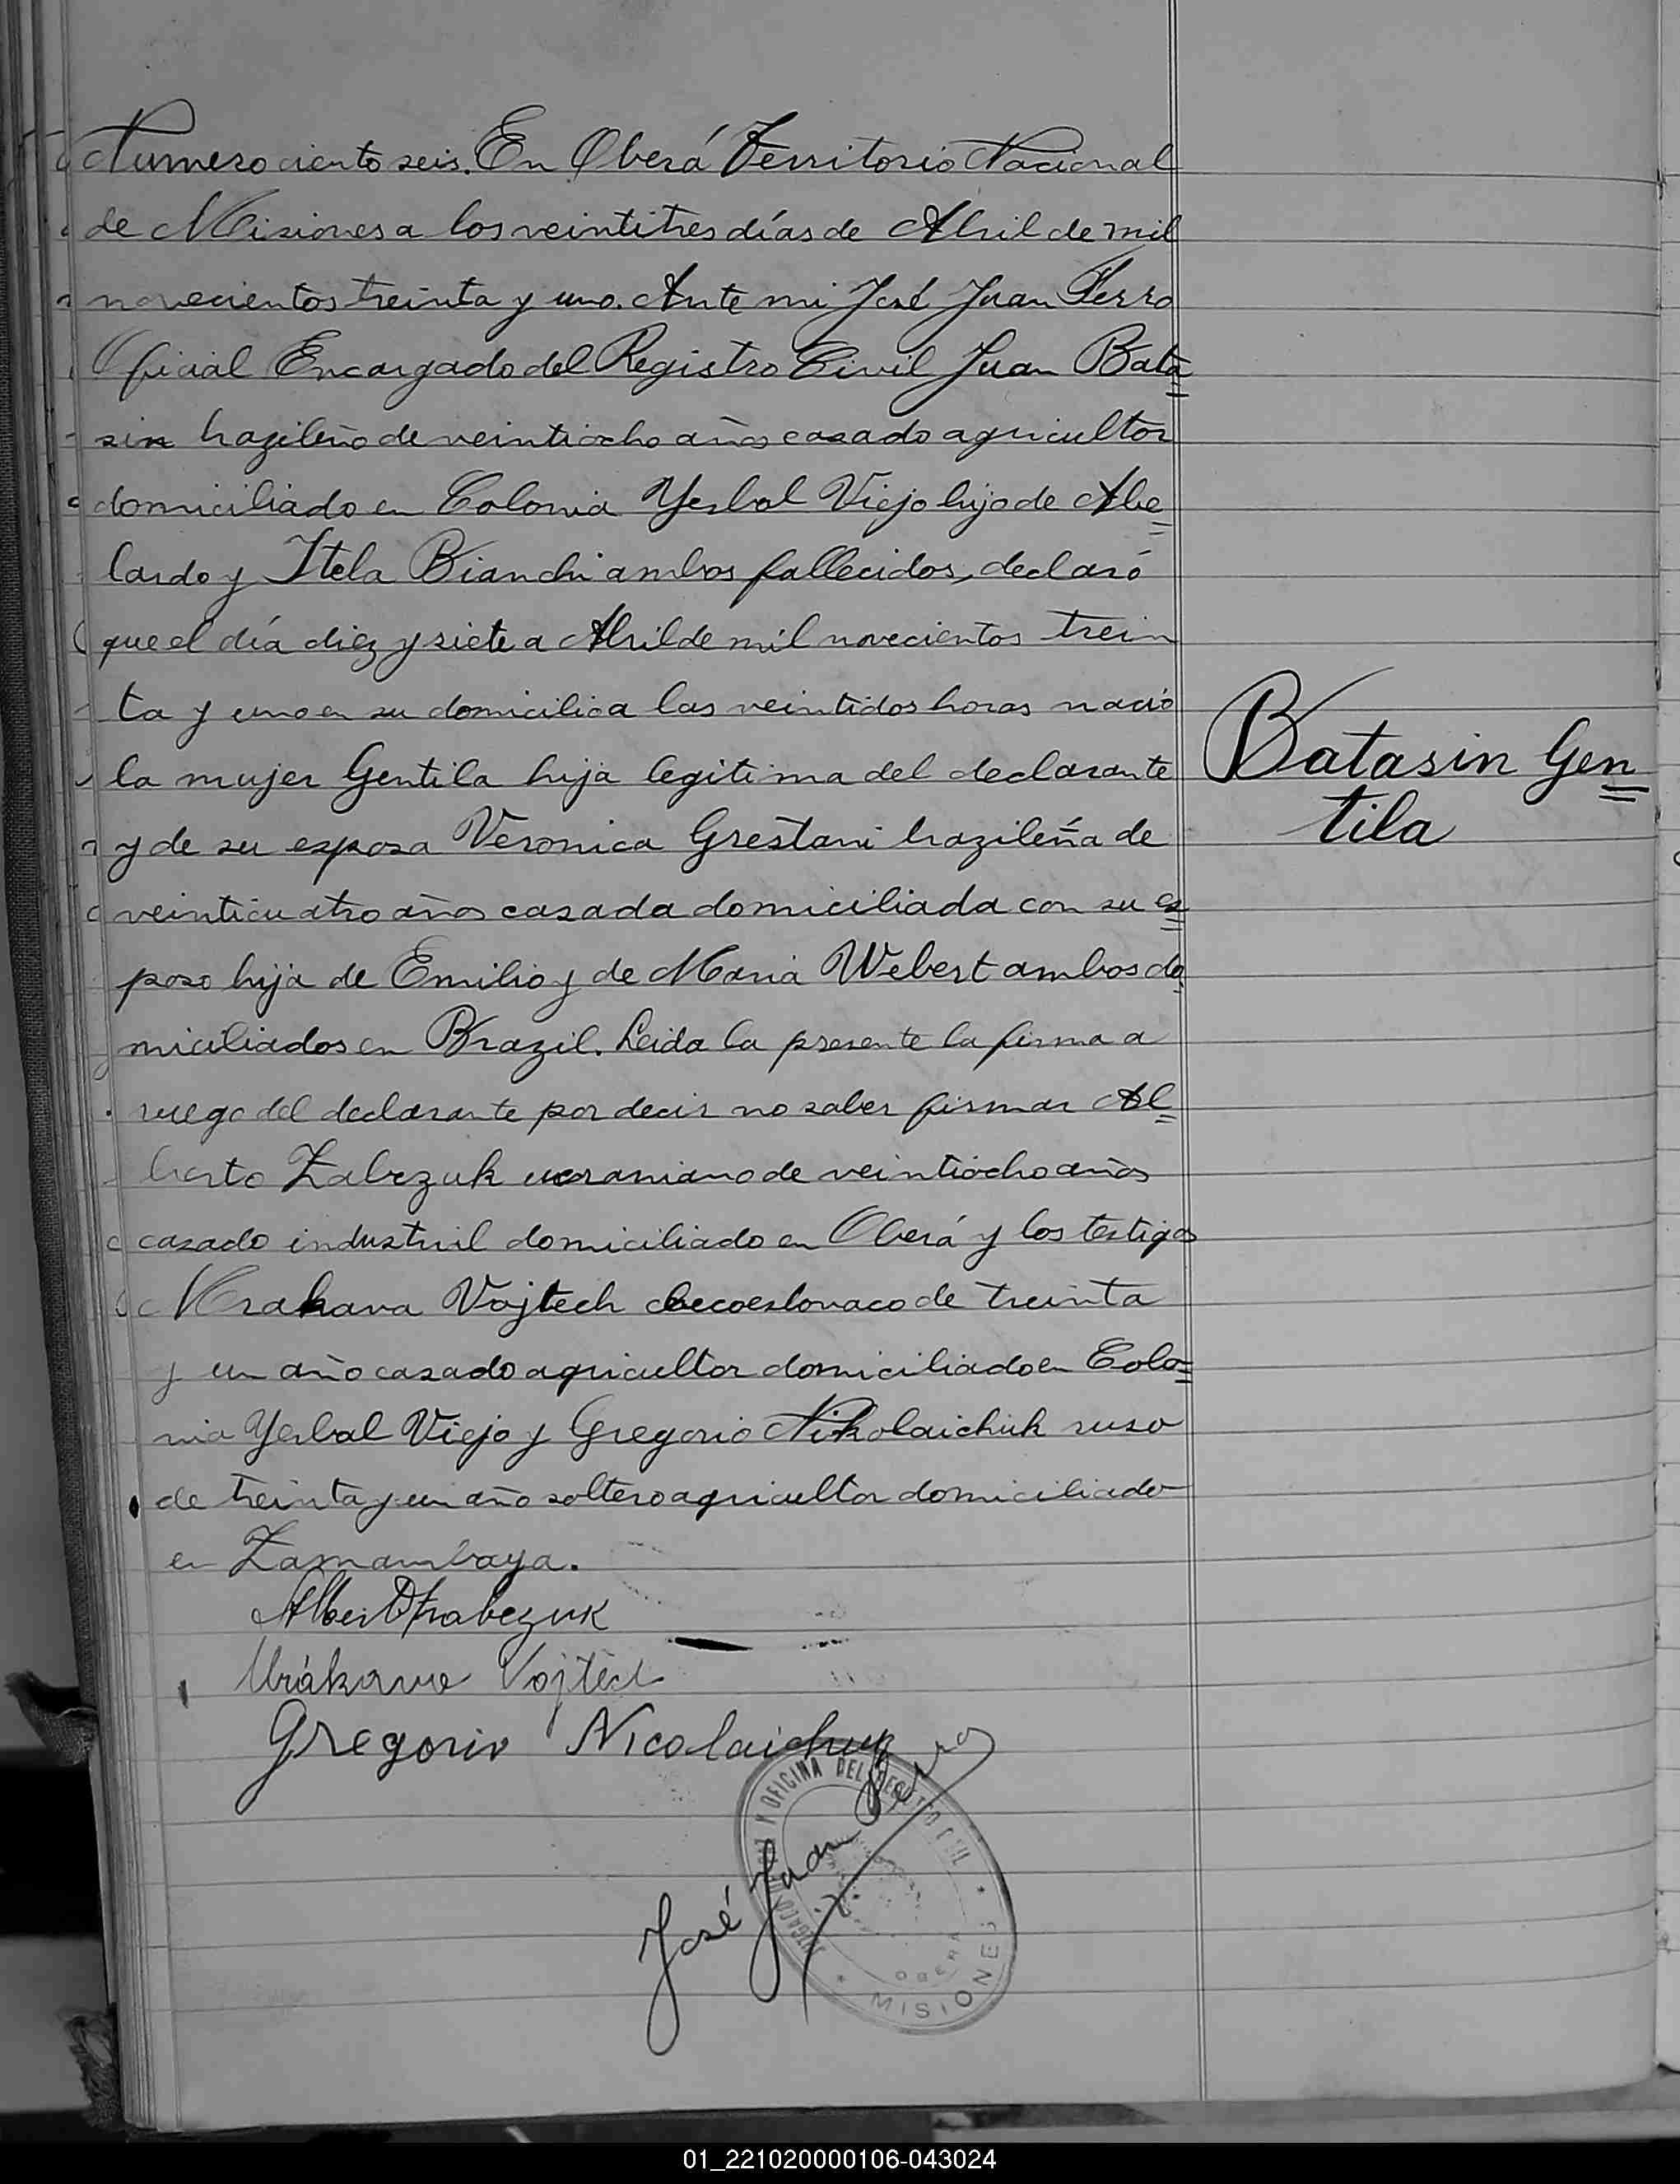 Numero ciento seis. En Oberá Territorio Nacional
de Misiones a los veintitres días de Abril de mil
novecientos treinta y uno. Ante mi José Juan Perro
Oficial Encargado del Registro Civil Juan Bata=
sin brazileño de veintiocho años casado agricultor
domiciliado en Colonia Yerbal Viejo hijo de Abe=
lardo y Itela Bianchi ambos fallecidos, declaró
que el día diez y siete a Abril de mil novecientos trein
ta y uno en su domicilio a las veintidos horas nació
la mujer Gentila hija legitima del declarante
y de su esposa Veronica Grestani brazileña de
veinticuatro años casada domiciliada con su es=
poso hija de Emilio y de Maria Webert ambos do=
miciliados en Brazil. Leida la presente la firma a
ruego del declarante por decir no saber firmar Al=
berto Zabczuk ucraniano de veintiocho años
casado industril domiciliado en Oberá y los testigos
Mrakava Vojtech checoeslovaco de treinta
y un año casado agricultor domiciliado en Colo=
nia Yerbal Viejo y Gregorio Nikolaichuk ruso
de treinta y un año soltero agricultor domiciliado
en Zamambaya.
Batasin Gen=
tila
Mrákava Vojtěch
Gregorio Nicolaichuk
José Juan Perro
Y OFICINA DEL REGISTRO CIVIL
OBERA
* MISIONES *
01_221020000106-043024